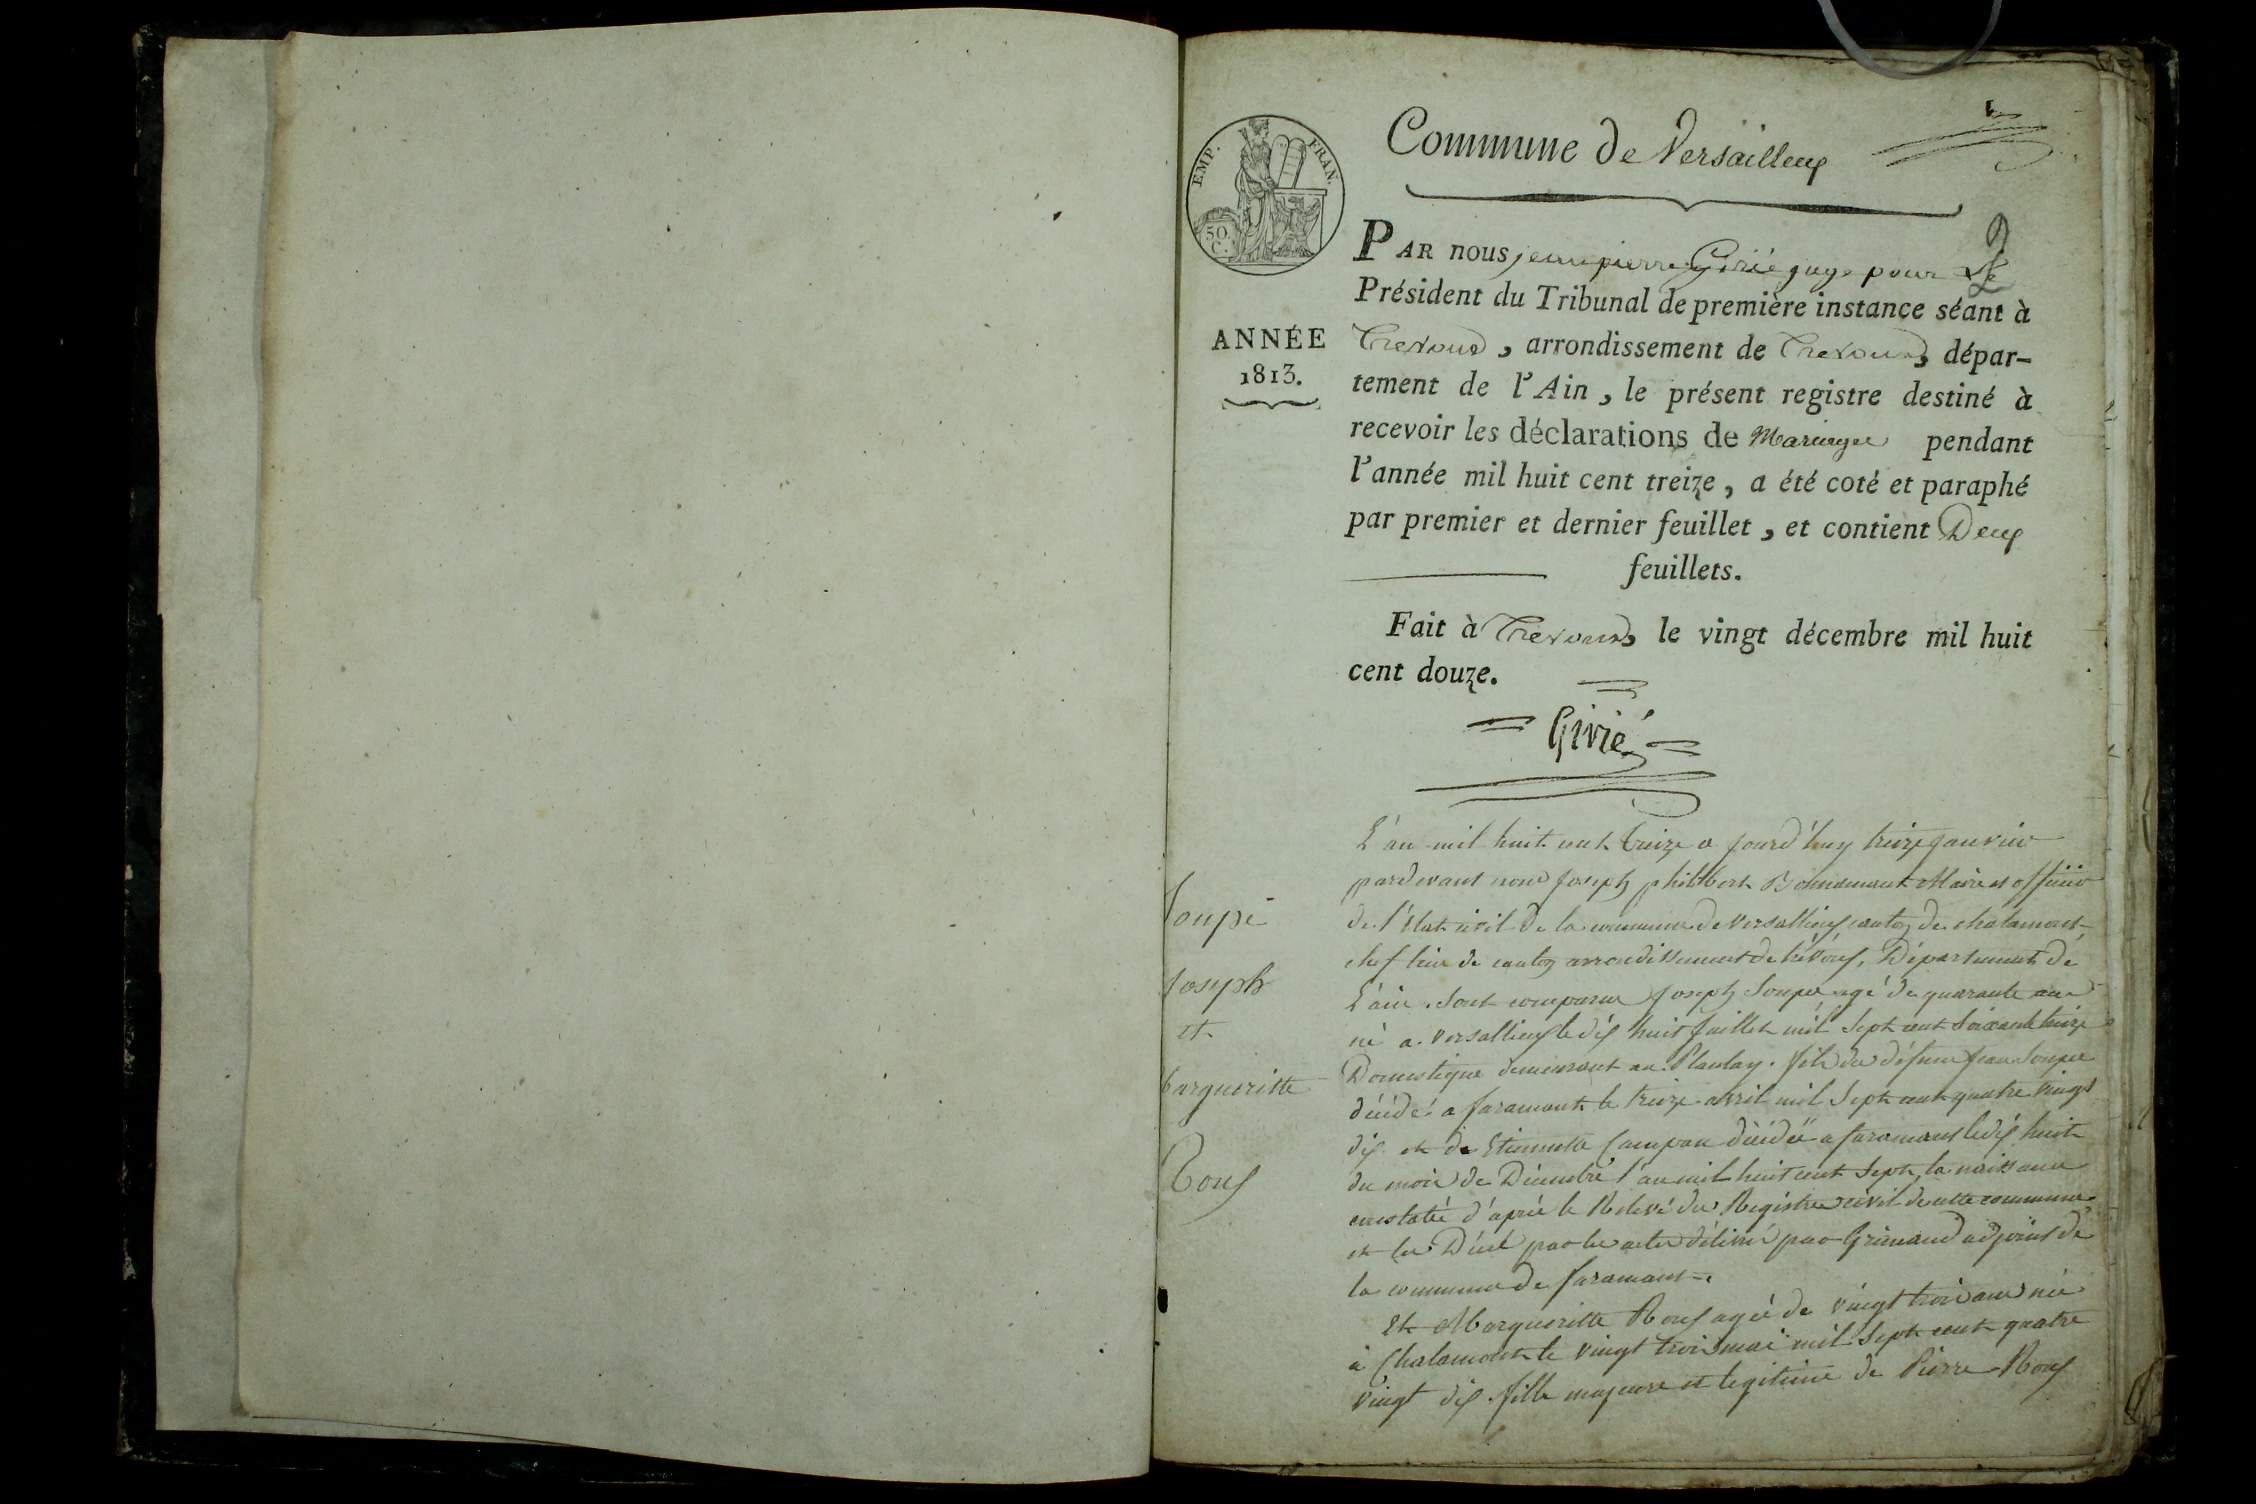 Commune de Versailleux
EMP. FRAN.
50.
C.
PAR nous jean pierre Girié juge pour Le
Président du Tribunal de première instance séant à
ANNÉE
1813.
Trevoux, arrondissement de Trevoux, dépar-
tement de l'Ain, le présent registre destiné à
recevoir les déclarations de Mariages pendant
l'année mil huit cent treize, a été coté et paraphé
par premier et dernier feuillet, et contient Deux
feuillets.
Fait à Trevoux, le vingt décembre mil huit
cent douze.
Girié
L'an mil huit cent treize a jourd'huy treize janvier
pardevant nous Joseph philibert Maire et officier
de l'Etat civil de la commune de Versallieux canton de chalamont
chef lieu de canton arrondissement de trévoux, Département de
L'ain. Sont comparus Joseph Soupe agé de quarante ans
né a Versallieux le dix huit Juillet mil Sept cent Soixante treize
Domestique demeurant au Plantay. fils de défunt Jean Soupe
décédé a faramant le treize avril mil Sept cent quatre vingt
dix et de Etiennette Campan décédée a faramant le dix huit
du mois de Décembre l'an mil huit cent Sept, la naissance
constatée d'après le Relevé du Registre civil de cette commune
et les Décès par les actes délivré par Grimaud adjoint de
la commune de faramant.
Soupe
Joseph
et
Margueritte
Roux
Et Margueritte Roux agée de vingt trois ans née
à Chalamont le vingt trois mai mil Sept cent quatre
vingt dix. fille majeure et legitime de Pierre Roux